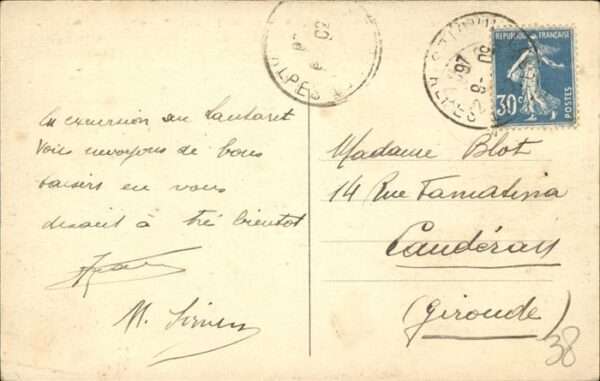 En excursion au Lautaret
Vous envoyons de bons
baisers en vous
disant à très bientôt
M.
Madame Blot
14 Rue Tamatina
Caudéran
(Gironde)
38
RÉPUBLIQUE FRANÇAISE
30c
POSTES
ALPES
ALPES